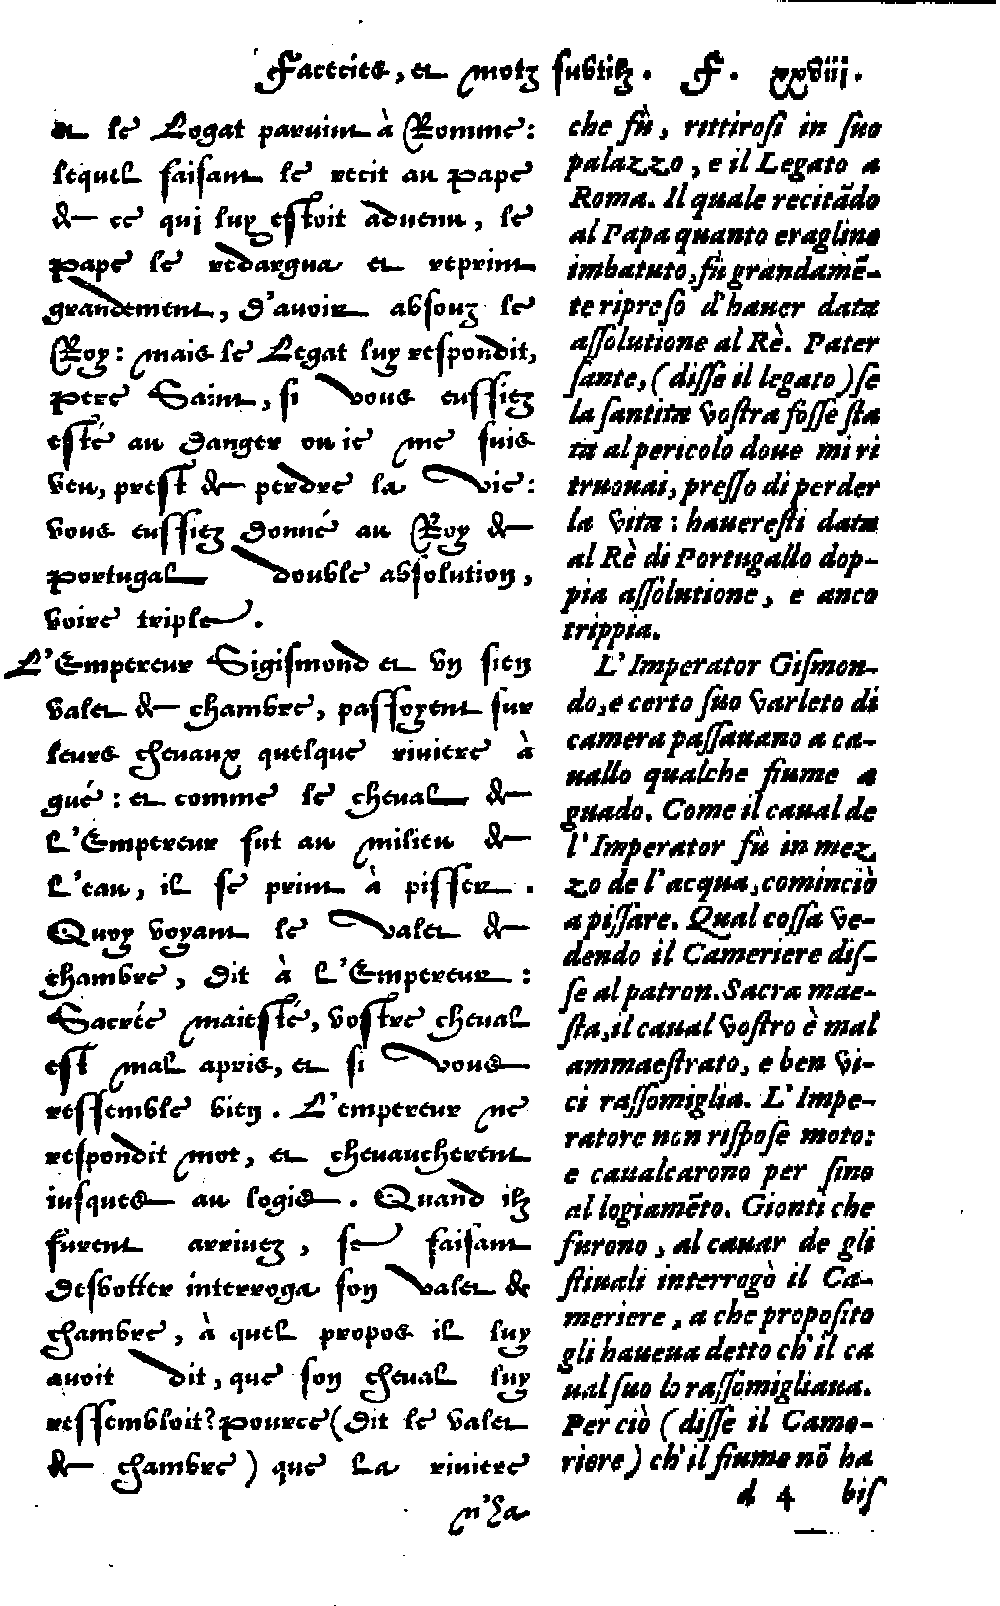 Facecies, et motz subtilz. F. xxviij.
et le Legat paruint à Romme:
lequel faisant le recit au pape
de ce qui luy estoit aduenu, le
pape le redargua et reprint
grandement, d'auoir absouz le
Roy: mais le Legat luy respondit,
pere Saint, si vous eussiez
esté au danger ou ie me suis
veu, prest de perdre la vie:
vous eussiez donné au Roy de
portugal double absolution,
voire triple.
L'Empereur Sigismond et vn sien
valet de chambre, passoyent sur
leurs cheuaux quelque riuiere à
gué: et comme le cheual de
L'Empereur fut au milieu de
L'eau, il se print à pisser.
Quoy voyant le valet de
chambre, dit à L'Empereur:
Sacrée maiesté, vostre cheual
est mal apris, et si vous
ressemble bien. L'empereur ne
respondit mot, et cheuaucherent
iusques au logis. Quand ilz
furent arriuez, se faisant
desbotter interroga son valet de
chambre, à quel propos il luy
auoit dit, que son cheual luy
ressembloit? pource (dit le valet
de chambre) que la riuiere
n'ha
che fù, rittirosi in suo
palazzo, e il Legato a
Roma. Il quale recitādo
al Papa quanto eragline
imbatuto, fù grandamē-
te ripreso d'hauer data
assolutione al Rè. Pater
sante, (disse il legato) se
la santita vostra fosse sta
ta al pericolo doue mi ri
truouai, presso di perder
la vita: haueresti data
al Rè di Portugallo dop-
pia assolutione, e anco
trippia.
L'Imperator Gismon-
do, e certo suo varleto di
camera passauano a ca-
uallo qualche fiume a
guado. Come il caual de
l'Imperator fù in mez
zo de l'acqua, cominciò
a pissare. Qual cossa ve-
dendo il Cameriere dis-
se al patron. Sacra mae-
sta, il caual vostro è mal
ammaestrato, e ben vi-
ci rassomiglia. L'Impe-
ratore non rispose moto:
e caualcarono per sino
al logiamēto. Gionti che
furono, al cauar de gli
stiuali interrogò il Ca-
meriere, a che proposito
gli haueua detto ch'il ca
ual suo lo rassomigliaua.
Per ciò (disse il Came-
riere) ch'il fiume nō ha
d 4 bis